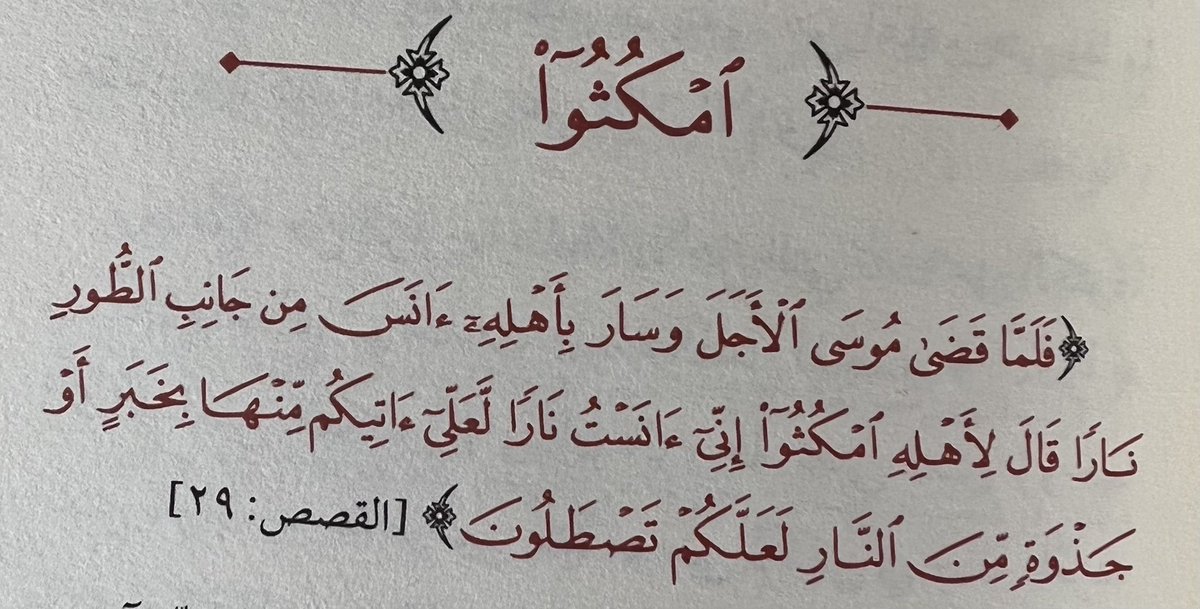 ٱمۡكُثُوٓاْ
﴿فَلَمَّا قَضَىٰ مُوسَى ٱلۡأَجَلَ وَسَارَ بِأَهۡلِهِۦٓ ءَانَسَ مِن جَانِبِ ٱلطُّورِ
نَارٗا قَالَ لِأَهۡلِهِ ٱمۡكُثُوٓاْ إِنِّيٓ ءَانَسۡتُ نَارٗا لَّعَلِّيٓ ءَاتِيكُم مِّنۡهَا بِخَبَرٍ أَوۡ
جَذۡوَةٖ مِّنَ ٱلنَّارِ لَعَلَّكُمۡ تَصۡطَلُونَ﴾ [القصص: ٢٩]